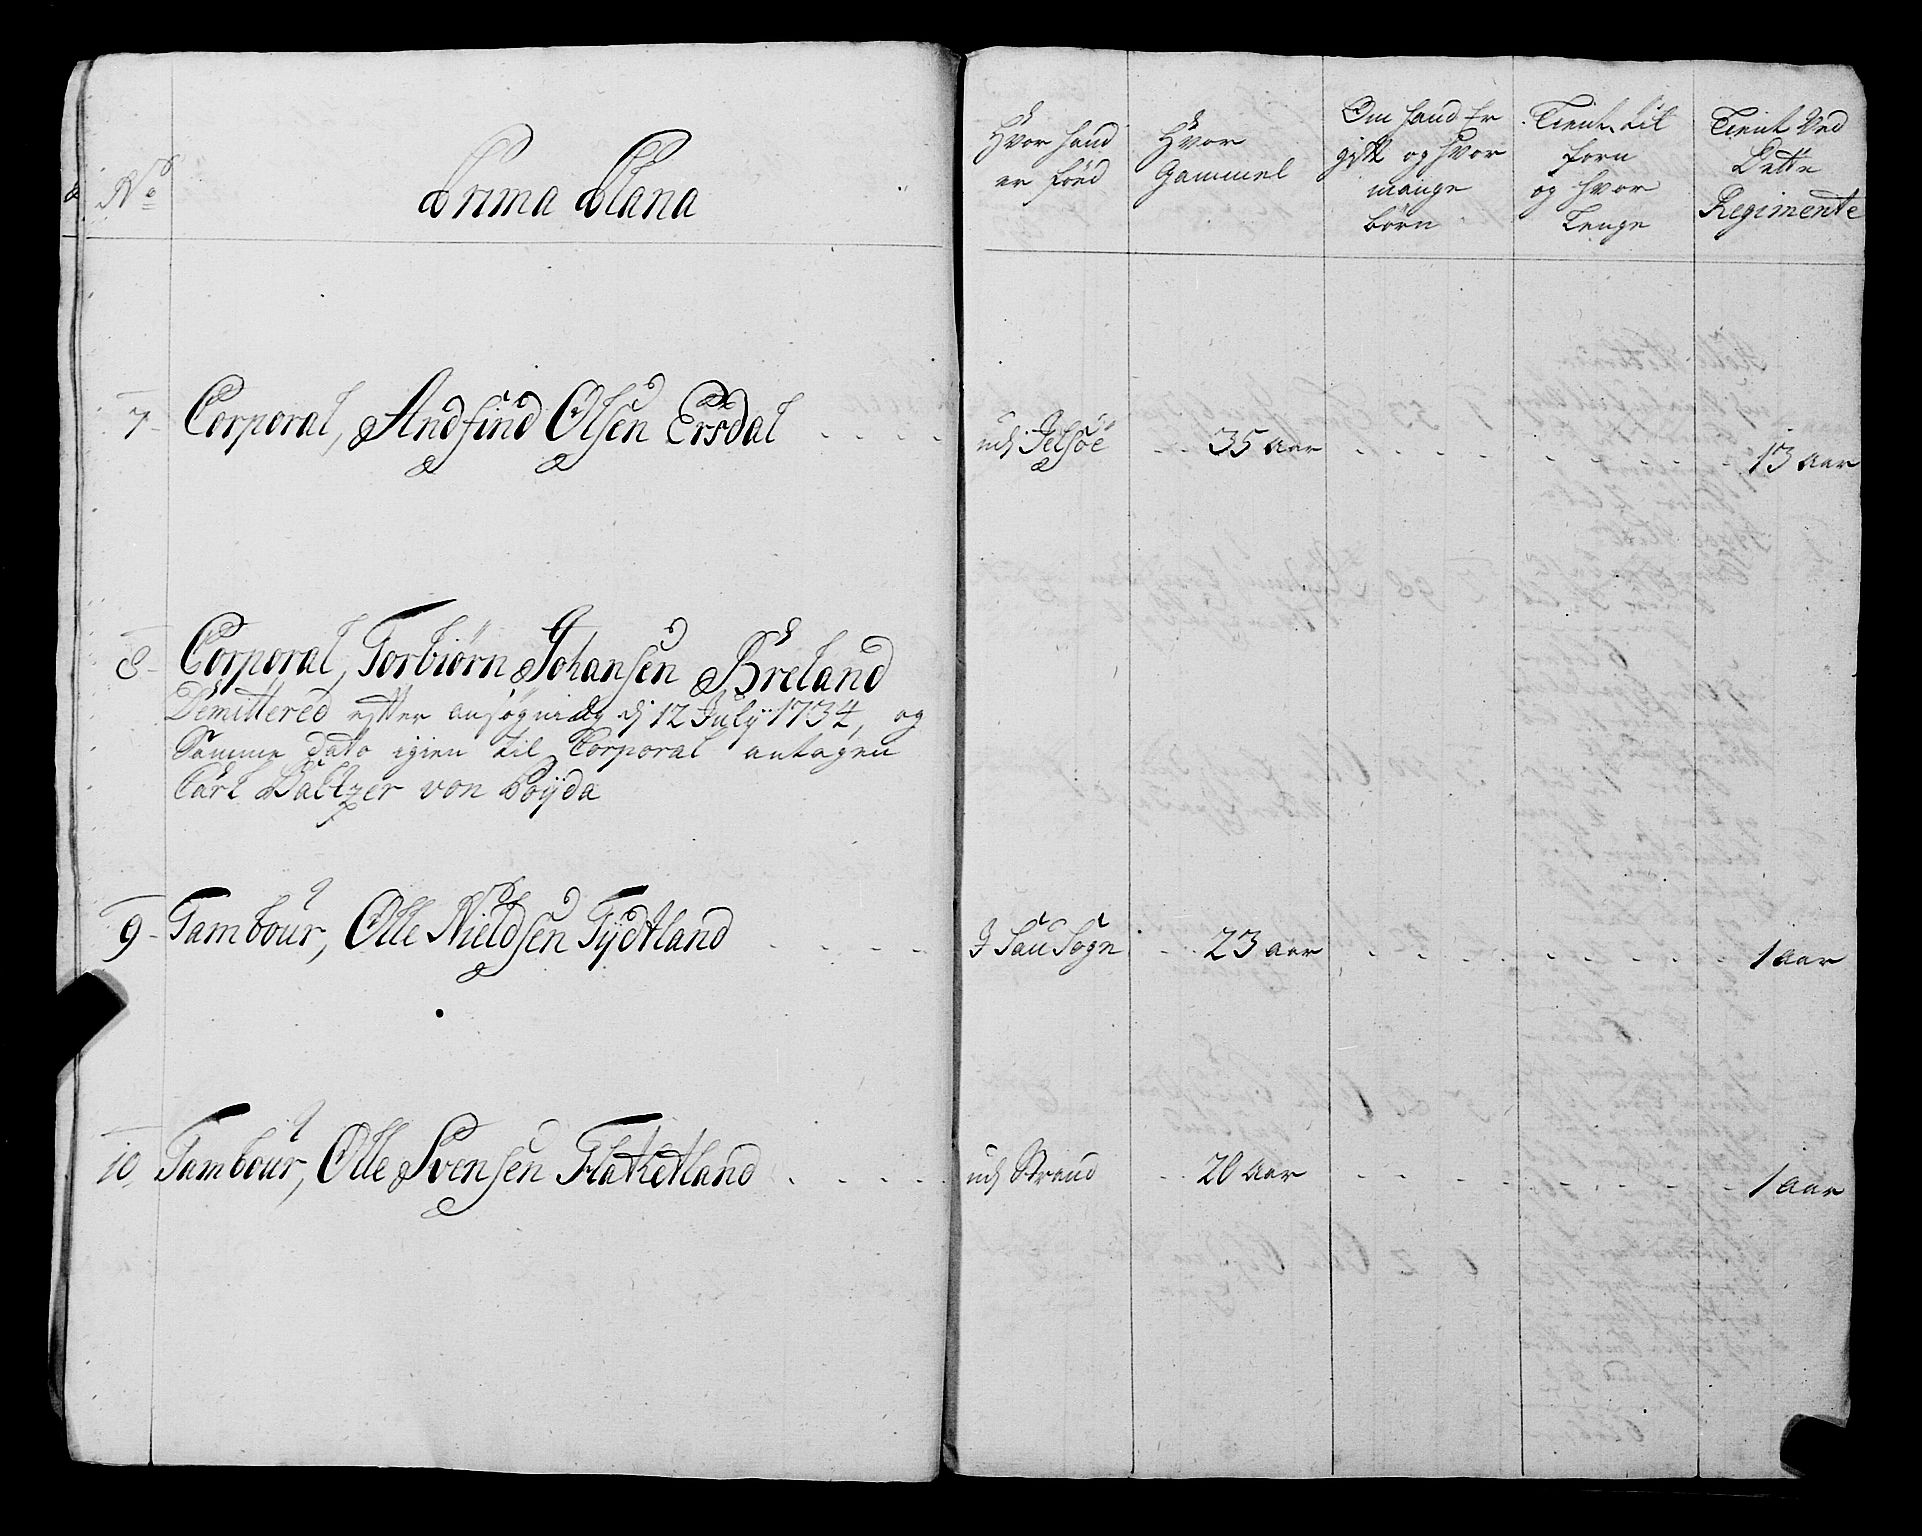 No
Prima Plana
Hvor hand
er föed
Hvor
Gammel
Om hand Er
gift og hvor
mange
börn
Tient til
forn
og hvor
Lenge
Tient Ved
Dette
Regimente
7 Corporal, Andfind Olsen Ersdal
udj Jelsöe 35 aar 13 aar
8 Corporal, Torbiörn Johansen Breland
Demittered efter ansögning dj 12 Julÿ 1734, og
Samme dato igien til Corporal antagen
Carl Baltzer von Böÿda
9 Tambour, Olle Nieldsen Tÿdtland
J Sau Sogn 23 aar 1 aar
10 Tambour, Olle Svensen Flatketland
udj Strand 20 aar 1 aar